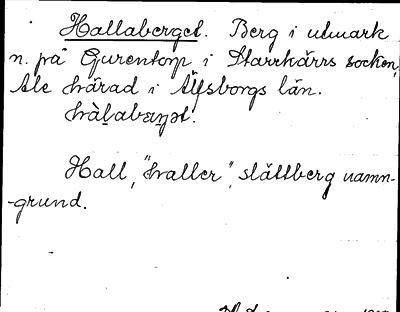 Hallaberget. Berg i utmark
n. på Gurentorp i Starrkärrs socken,
Ale härad i Älfsborgs län.
Hall, "haller", slättberg namn-
-grund.